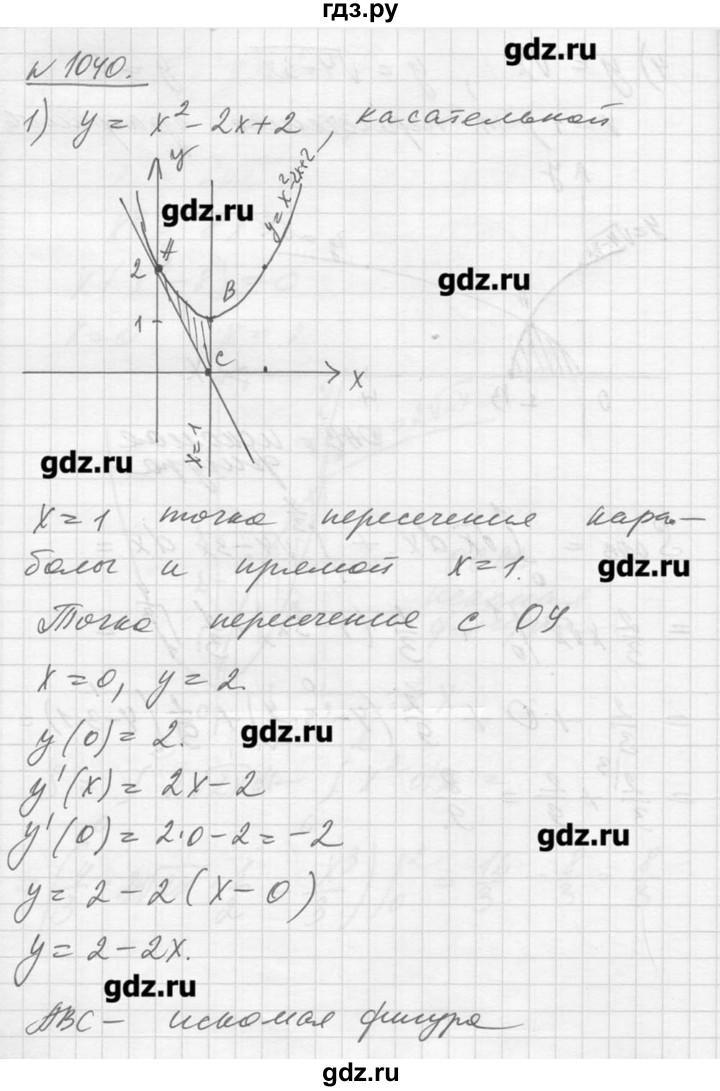 гдз.ру
gdz.ru
N 1040.
1) y = x² - 2x + 2, касательной
y
y = x² - 2x + 2
gdz.ru
A
2
gdz.ru
B
1
C
x
x = 1
gdz.ru
x = 1 точка пересечения пара-
болы и прямой x = 1.
gdz.ru
Точка пересечения с OY
x = 0, y = 2.
y(0) = 2.
gdz.ru
y'(x) = 2x - 2
y'(0) = 2·0 - 2 = -2
gdz.ru
y = 2 - 2(x - 0)
y = 2 - 2x.
gdz.ru
ABC - искомая фигура
gdz.ru